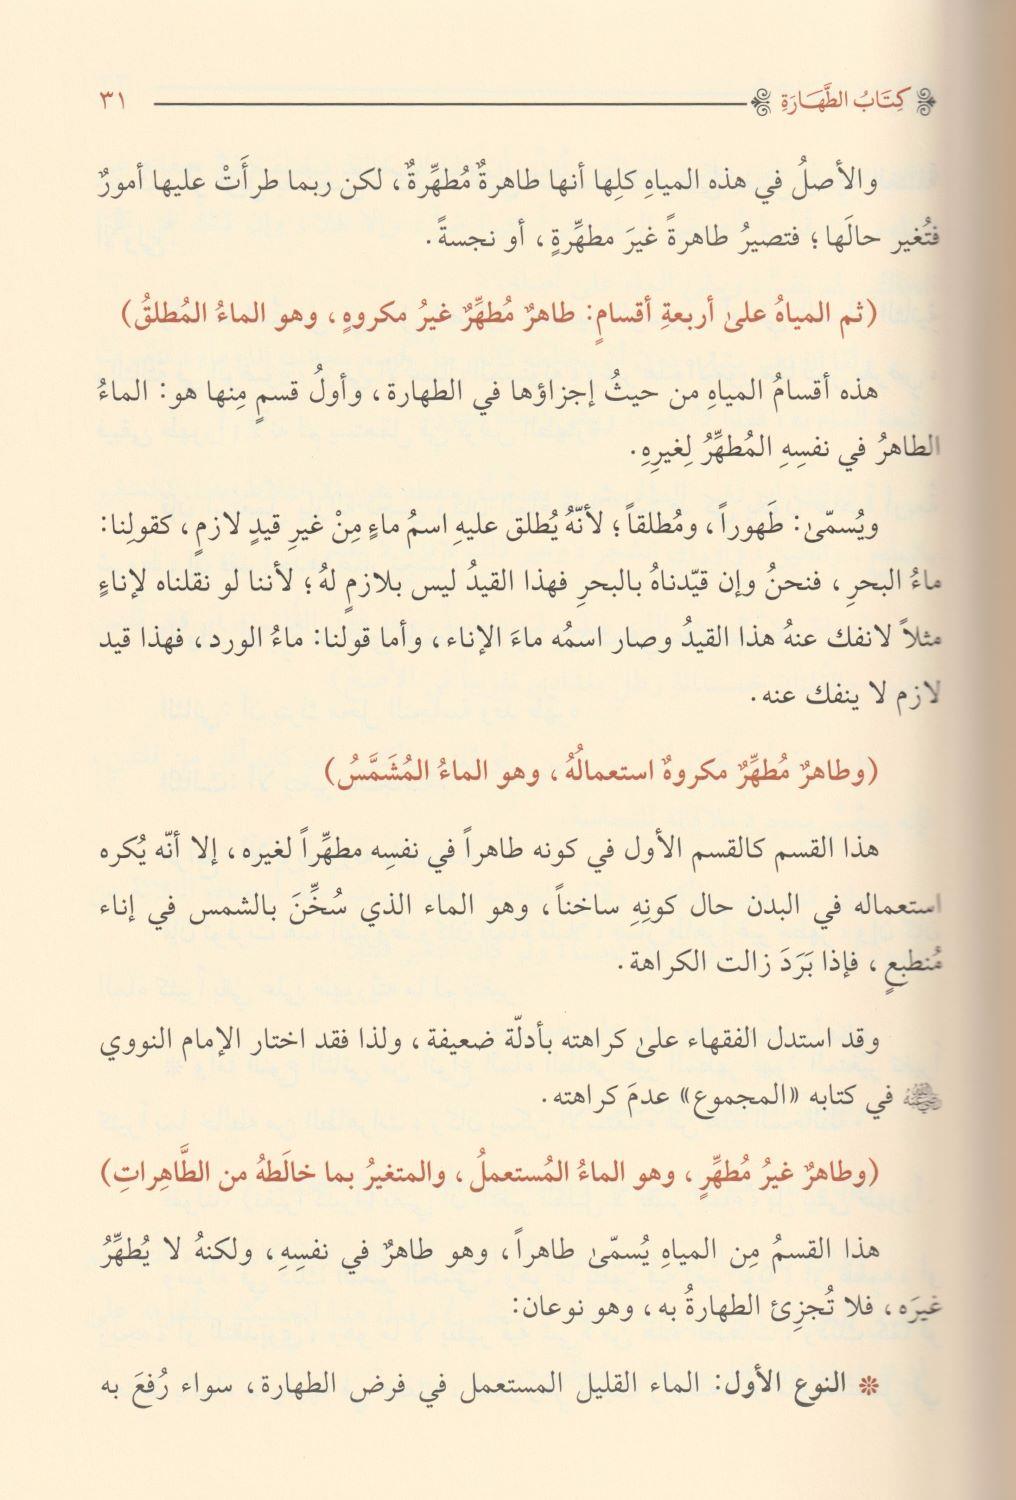 كِتَابُ الطَّهَارَةِ ٣١
والأصلُ في هذه المياهِ كلِها أنها طاهرةٌ مُطهِّرةٌ، لكن ربما طرأَتْ عليها أمورٌ
فتُغير حالَها؛ فتصيرُ طاهرةً غيرَ مطهِّرةٍ، أو نجسةً.
(ثم المياهُ علىٰ أربعةِ أقسامٍ: طاهرٌ مُطهِّرٌ غيرُ مكروهٍ، وهو الماءُ المُطلقُ)
هذه أقسامُ المياهِ من حيثُ إجزاؤها في الطهارة، وأولُ قسمٍ مِنها هو: الماءُ
الطاهرُ في نفسِهِ المُطهِّرُ لِغيرِهِ.
ويُسمّىٰ: طَهوراً، ومُطلقاً؛ لأنّهُ يُطلق عليهِ اسمُ ماءٍ مِنْ غيرِ قيدٍ لازمٍ، كقولِنا:
ماءُ البحرِ، فنحنُ وإن قيّدناهُ بالبحرِ فهذا القيدُ ليس بلازمٍ لهُ؛ لأننا لو نقلناه لإناءٍ
مثلاً لانفك عنهُ هذا القيدُ وصار اسمُه ماءَ الإناء، وأما قولنا: ماءُ الورد، فهذا قيد
لازم لا ينفك عنه.
(وطاهرٌ مُطهِّرٌ مكروهٌ استعمالُهُ، وهو الماءُ المُشَمَّسُ)
هذا القسم كالقسم الأول في كونه طاهراً في نفسِه مطهِّراً لغيره، إلا أنّه يُكره
استعماله في البدن حال كونِهِ ساخناً، وهو الماء الذي سُخِّنَ بالشمس في إناء
مُنطبِعٍ، فإذا بَرَدَ زالت الكراهة.
وقد استدل الفقهاء علىٰ كراهته بأدلّة ضعيفة، ولذا فقد اختار الإمام النووي
في كتابه «المجموع» عدمَ كراهته.
(وطاهرٌ غيرُ مُطهِّرٍ، وهو الماءُ المُستعملُ، والمتغيرُ بما خالَطهُ من الطَّاهِراتِ)
هذا القسمُ مِن المياهِ يُسمّىٰ طاهراً، وهو طاهرٌ في نفسِهِ، ولكنهُ لا يُطهِّرُ
غيرَه، فلا تُجزِئ الطهارةُ به، وهو نوعان:
❊ النوع الأول: الماء القليل المستعمل في فرض الطهارة، سواء رُفعَ به